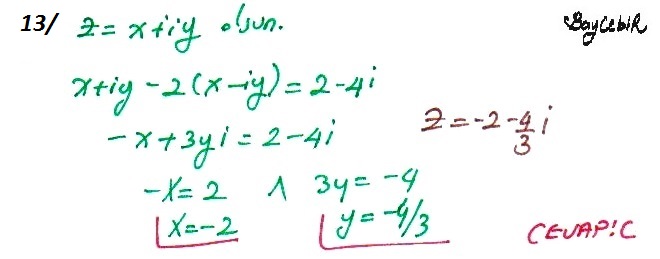 13/ z = x+iy olsun.
BayCebiR
x+iy -2(x-iy) = 2-4i
-x+3yi = 2-4i
z = -2 - 4/3 i
-x = 2 ∧ 3y = -4
x = -2 y = -4/3
CEVAP: C